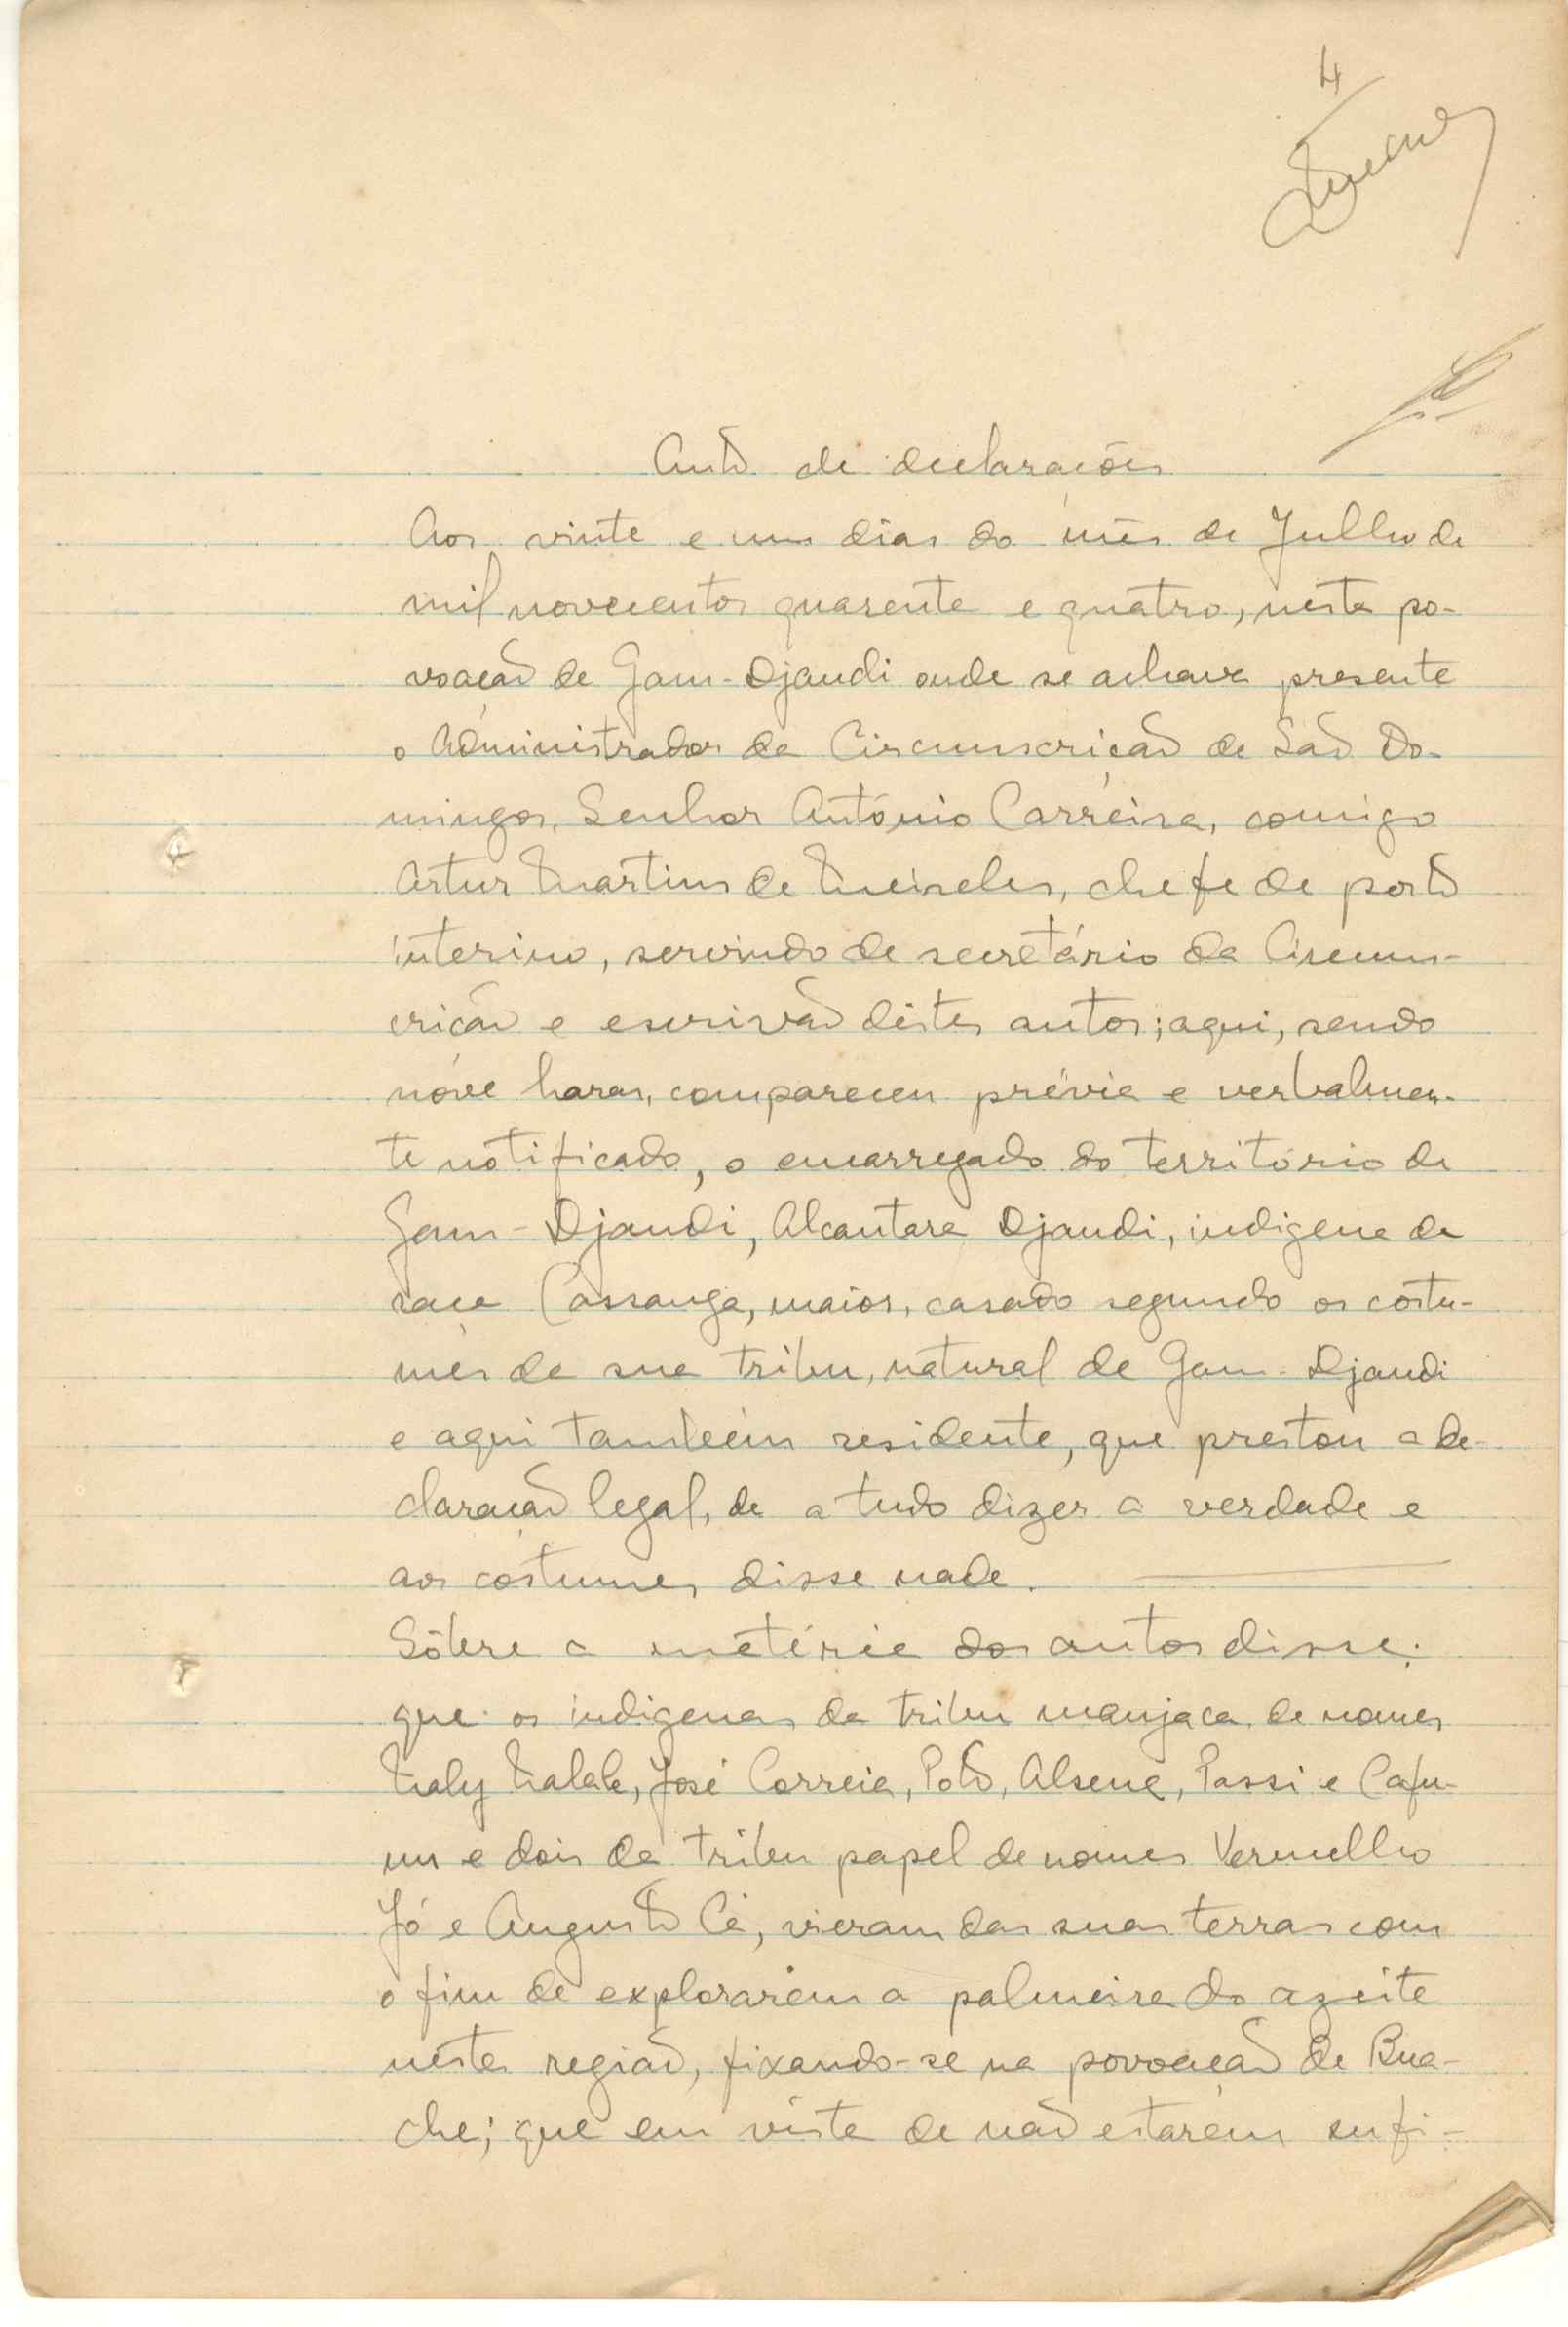 4
Auto de declarações
Aos vinte e um dias do mês de Julho de
mil novecentos quarenta e quatro, nesta po-
voação de Gam-Djaudi onde se achava presente
o Administrador da Circunscrição de São Do-
mingos, Senhor António Carreira, comigo
Artur Martins de Meireles, chefe de posto
interino, servindo de secretário da Circuns-
crição e escrivão dêstes autos; aqui, sendo
nóve horas, compareceu prévia e verbalmen-
te notificado, o encarregado do território de
Gam-Djaudi, Alcantara Djaudi, indigena da
raça Cassanga, maior, casado segundo os costu-
mes da sua tribu, natural de Gam-Djaudi
e aqui também residente, que prestou a de-
claração legal, de a tudo dizer a verdade e
aos costumes disse nada.
Sôbre a matéria dos autos disse:
que os indigenas da tribu manjaca de nomes
Maly, José Correia, Poto, Alsene, Passi e Cafu-
um e dois da tribu papel de nomes Vermelho
Jó e Augusto Cá, vieram das suas terras com
o fim de explorarem a palmeira do azeite
nesta região, fixando-se na povoação de Bua-
che; que em vista de não estarem sufi-